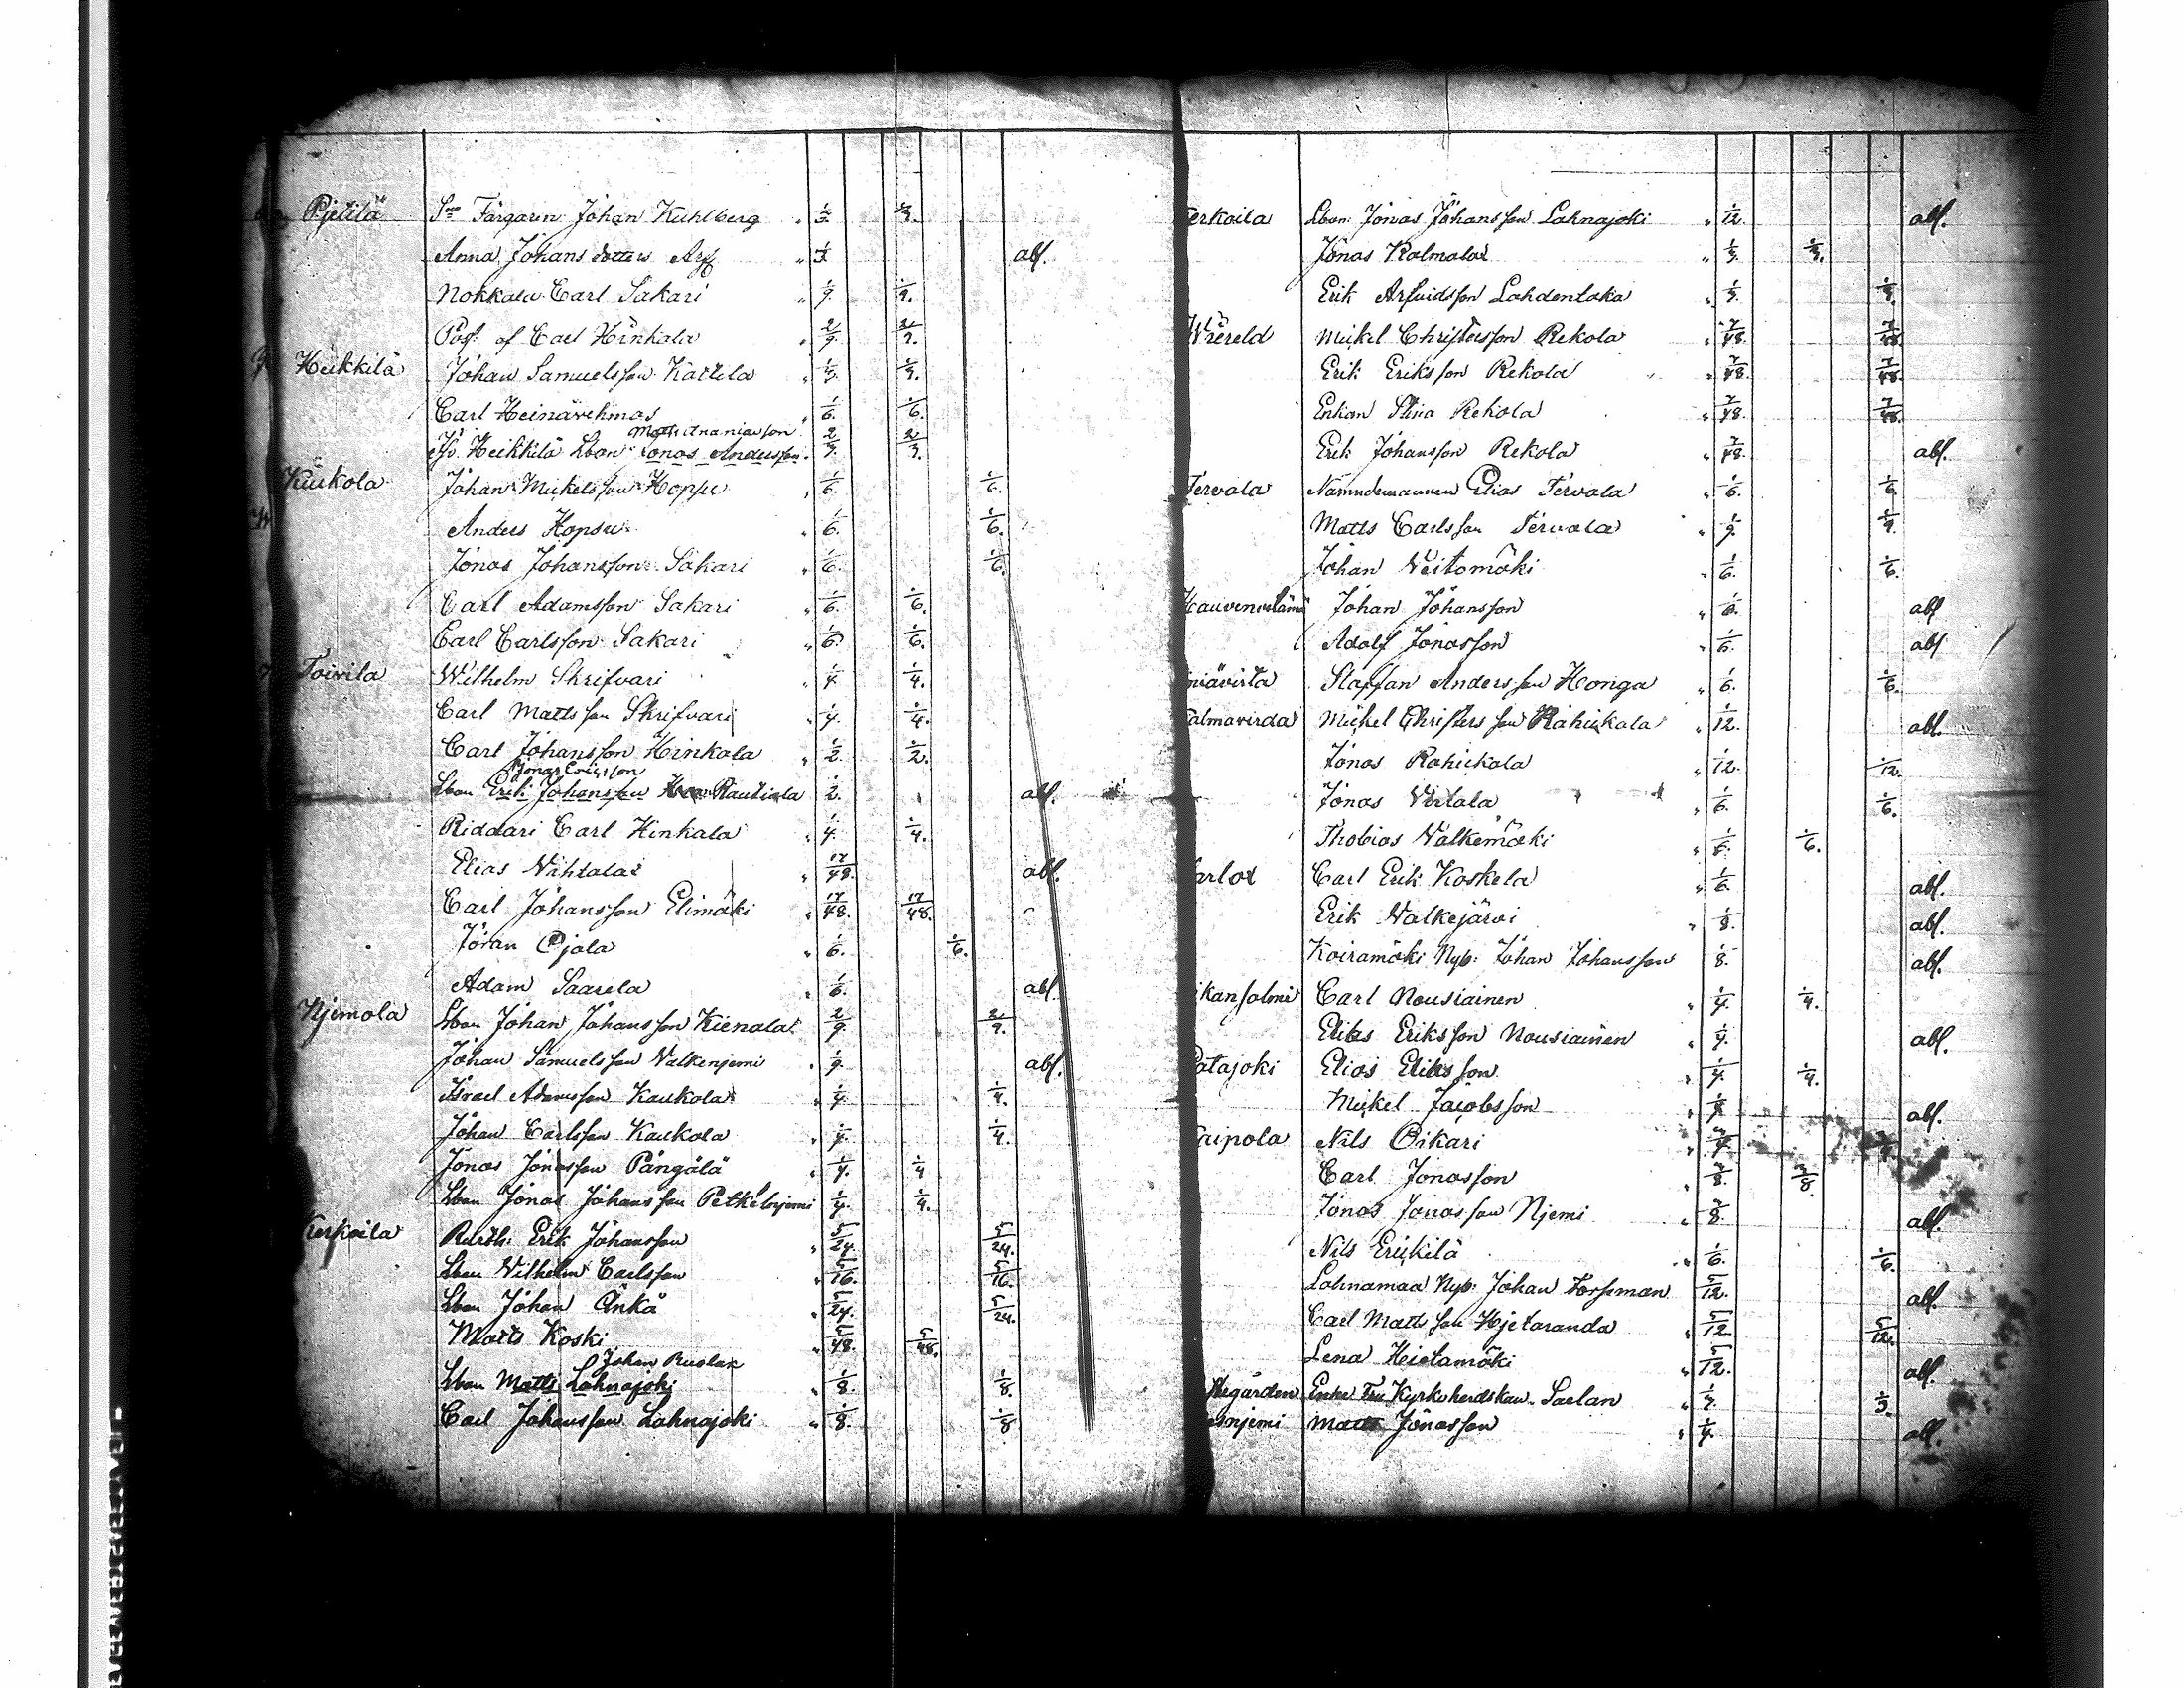 Pjetilä Sre Färgaren Johan Kuhlberg " 1/3 1/3.
Anna Johans dotters Arf " 1/3 abs.
Nokkala Carl Sakari " 1/9. 1/9.
Poss. af Carl Hinkala " 2/9. 2/9.
Heikkilä Johan Samuelsson Kattila " 1/3. 1/3.
Carl Heinärehmas " 1/6. 1/6.
Matts Ananiasson
Iso Heikkilä Lbon Jonas Andersson 2/3. 2/3.
Kiukola Johan Mickelsson Hopsu " 1/6. 1/6.
Anders Hopsu " 1/6. 1/6.
Jonas Johansson Sakari " 1/6. 1/6.
Carl Adamsson Sakari " 1/6. 1/6.
Carl Carlsson Sakari " 1/6. 1/6.
Toivila Wilhelm Skrifvari " 1/4. 1/4.
Carl Matts son Skrifvari " 1/4. 1/4.
Carl Johansson Hinkala " 1/2. 1/2.
Jonas Ericsson
Lbon Erik Johansson Rautiala 1/2. abs.
Riddari Carl Hinkala " 1/4. 1/4.
Elias Vihtala " 17/48. abs.
Carl Johansson Elimäki " 17/48. 17/48.
Jöran Ojala " 1/6. 1/6.
Adam Saarela " 1/6. abs.
Njemola Lbon Johan Johansson Kienala 2/9. 2/9.
Johan Samuelsson Valkenjemi " 1/9. abs.
Israel Adamsson Kaukola " 1/4. 1/4.
Johan Carlsson Kaukola " 1/4. 1/4.
Jonas Jonasson Pängälä " 1/4. 1/4
Lbon Jonas Johansson Petkelnjemi 1/4. 1/4.
Kerkoila Rusth: Erik Johansson " 5/24. 5/24.
Lbon Vilhelm Carlsson " 5/16. 5/16.
Lbon Johan Änkä " 5/24. 5/24.
Matts Koski " 5/48. 5/48.
Johan Ruolan
Lbon Matts Lahnajoki " 1/8. 1/8.
Carl Johansson Lahnajoki " 1/8. 1/8
erkoila Lbon Jonas Johansson Lahnajoki " 1/12. abs.
Jonas Kalmala " 1/3. 1/3.
Erik Arfvidsson Lahdentaka " 1/3. 1/3.
Mickel Christersson Rekola " 7/48. 7/48.
Erik Eriksson Rekola " 7/48. 7/48.
Enkan Stina Rekola " 7/48. 7/48.
Erik Johansson Rekola " 7/48. abs.
Tervala Nämndemannen Elias Tervala " 1/6. 1/6.
Matts Carlsson Tervala " 1/9. 1/9.
Johan Neitomäki " 1/6. 1/6.
Johan Johansson " 1/6. abs
Adolf Jonasson " 1/6. abs
niävirta Staffan Andersson Honga " 1/6. 1/6.
almavirda Mickel Christersson Rahikkala " 1/12. abs.
Jonas Rahikkala " 1/12. 1/12.
Jonas Virtala " 1/6. 1/6.
Thobias Valkemäki " 1/6. 1/6.
arlox Carl Erik Koskela " 1/6. abs.
Erik Valkejärvi " 1/8. abs.
Koiramäki Nyb: Johan Johansson 1/8. abs.
ikansalmi Carl Nousiainen " 1/4. 1/4.
Elias Eriksson Nousiainen " 1/4. abs.
Patajoki Elias Eliasson " 1/4. 1/4.
Mickel Jacobsson " 1/4. abs.
aipola Nils Oikari
Carl Jonasson " 3/8. 3/8.
Jonas Jonasson Njemi " 3/8. abs.
Nils Erikkilä " 1/6. 1/6.
Lahnamaa Nyb: Johan Forssman 5/12. abs.
Carl Matts son Hjetaranda " 5/12. 5/12.
Lena Hietamäki " 5/12. abs.
Enke Fru Kyrkoherdskan Saelan " 1/3. 1/3.
njemi Matts Jonasson " 1/4. abs.